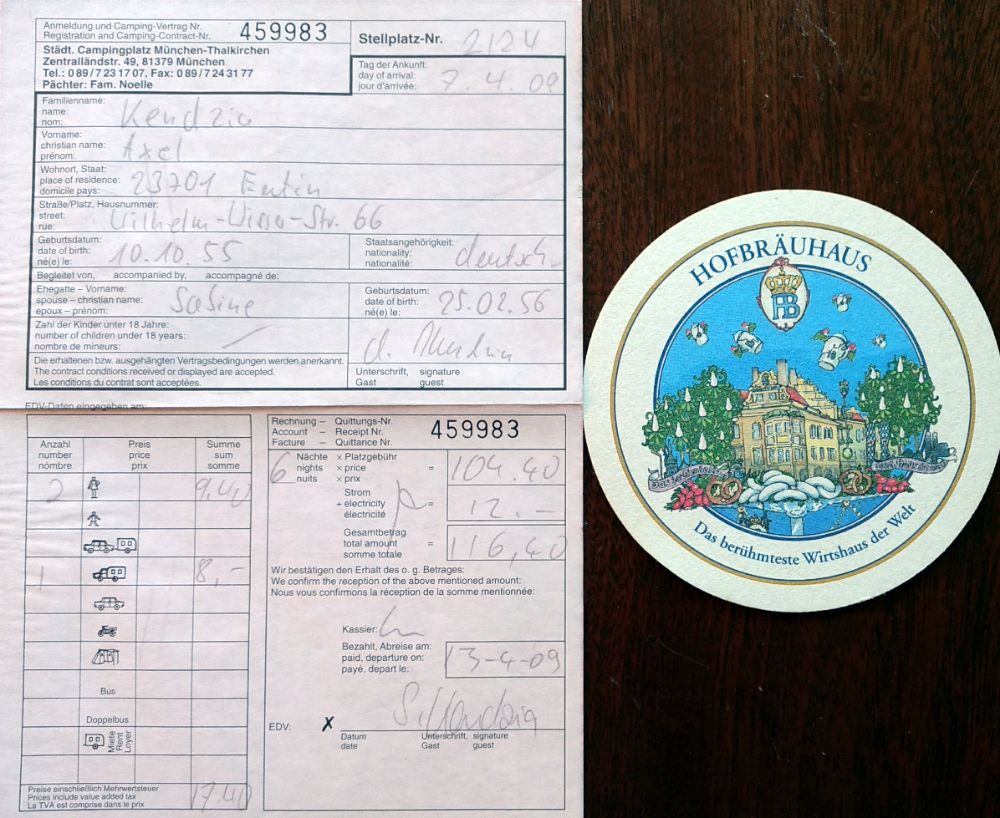 Anmeldung und Camping-Vertrag Nr.
Registration and Camping-Contract-Nr.
459983
Städt. Campingplatz München-Thalkirchen
Zentralländstr. 49, 81379 München
Tel.: 0 89 / 7 23 17 07, Fax: 0 89 / 7 24 31 77
Pächter: Fam. Noelle
Stellplatz-Nr. 2124
Tag der Ankunft:
day of arrival:
jour d'arrivée:
7.4.09
Familienname:
name:
nom:
Kendzia
Vorname:
christian name:
prénom:
Axel
Wohnort, Staat:
place of residence:
domicile pays:
23701 Eutin
Straße/Platz, Hausnummer:
street:
rue:
Wilhelm-Wisser-Str. 66
Geburtsdatum:
date of birth:
né(e) le:
10.10.55
Staatsangehörigkeit:
nationality:
nationalité:
deutsch
Begleitet von, accompanied by, accompagné de:
Ehegatte – Vorname:
spouse – christian name:
epoux – prénom:
Sabine
Geburtsdatum:
date of birth:
né(e) le:
25.02.56
Zahl der Kinder unter 18 Jahre:
number of children under 18 years:
nombre de mineurs:
Die erhaltenen bzw. ausgehängten Vertragsbedingungen werden anerkannt.
The contract conditions received or displayed are accepted.
Les conditions du contrat sont acceptées.
Unterschrift, signature
Gast guest
EDV-Daten eingegeben am:
Anzahl
number
nómbre
Preis
price
prix
Summe
sum
somme
2 9,40
1 8,-
Bus
Doppelbus
Miete
Rent
Loyer
Preise einschließlich Mehrwertsteuer
Prices include value added tax
La TVA est comprise dans le prix
17.40
Rechnung – Quittungs-Nr.
Account – Receipt Nr.
Facture – Quittance Nr.
459983
6
Nächte x Platzgebühr
nights x price = 104.40
nuits x prix
Strom
+ electricity = 12.-
électricité
Gesamtbetrag
total amount = 116,40
somme totale
Wir bestätigen den Erhalt des o. g. Betrages:
We confirm the reception of the above mentioned amount:
Nous vous confirmons la réception de la somme mentionnée:
Kassier:
Bezahlt, Abreise am:
paid, departure on:
payé, depart le:
13-4-09
S. Kendzia
EDV:
X
Datum
date
Unterschrift, signature
Gast guest
HOFBRÄUHAUS
HB
Das berühmteste Wirtshaus der Welt